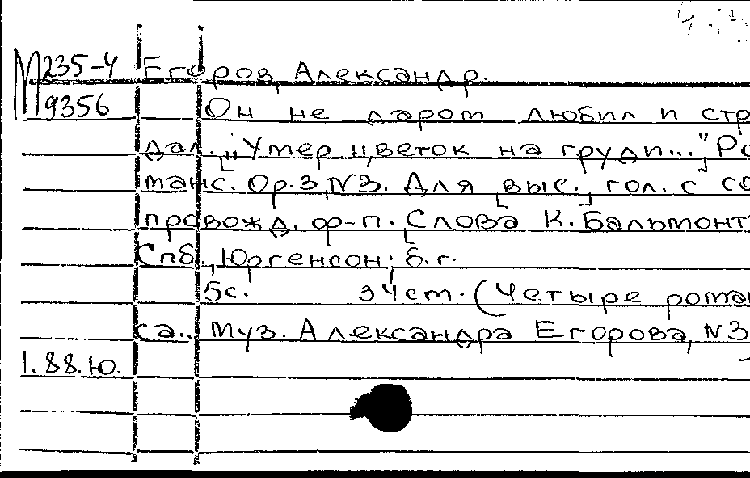 М 235-4 Егоров, Александр.
9356 Он не даром любил и стр
дал. „Умер цветок на груди..." Ро
манс. Ор.3, N3. Для выс. гол. с со
провожд. ф-п. Слова К. Бальмонт
Спб., Юргенсон; б.г.
5с. 34ст. (Четыре рома
са.. Муз. Александра Егорова, N3
1.88.Ю.